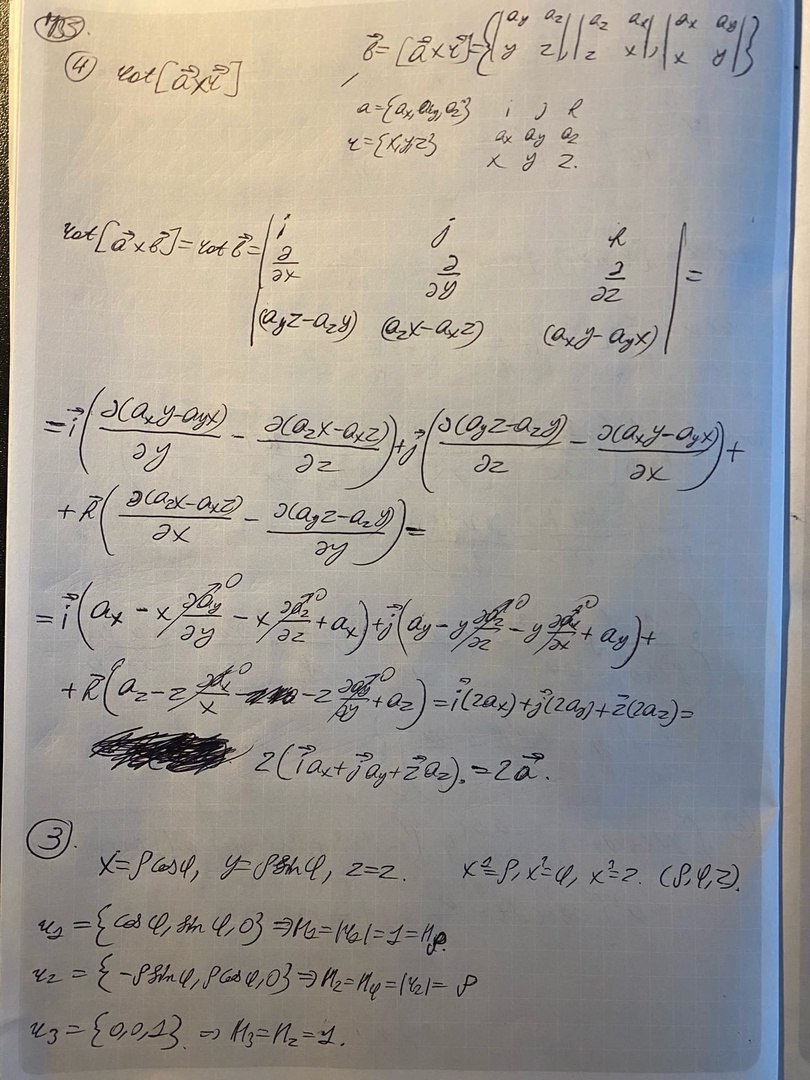 735.
④ rot[a⃗×r⃗]
b⃗ = [a⃗×r⃗] = {|ay az; y z|, |az ax; z x|, |ax ay; x y|}
a={ax, ay, az} i j k
r={x,y,z} ax ay az
x y z.
rot[a⃗×b⃗] = rot b⃗ = | i j k
∂/∂x ∂/∂y ∂/∂z | =
(ayz−azy) (azx−axz) (axy−ayx)
= i⃗(∂(axy−ayx)/∂y − ∂(azx−axz)/∂z) + j⃗(∂(ayz−azy)/∂z − ∂(axy−ayx)/∂x) +
+ k⃗(∂(azx−axz)/∂x − ∂(ayz−azy)/∂y) =
= i⃗(ax − x ∂ay/∂y⁰ − x ∂az/∂z⁰ + ax) + j⃗(ay − y ∂az/∂z⁰ − y ∂ax/∂x⁰ + ay) +
+ k⃗(az − z ∂ax/x⁰ − z ∂ay/∂y⁰ + az) = i⃗(2ax) + j⃗(2ay) + z⃗(2az) =
2(i⃗ax + j⃗ay + z⃗az). = 2a⃗.
③.
x=ρcosφ, y=ρsinφ, z=z. x¹=ρ, x²=φ, x³=z. (ρ,φ,z).
r₁ = {cosφ, sinφ, 0} ⇒ H₁=|r₁|=1=Hρ.
r₂ = {−ρsinφ, ρcosφ, 0} ⇒ H₂=Hφ=|r₂|= ρ
r₃ = {0,0,1}. ⇒ H₃=Hz=1.